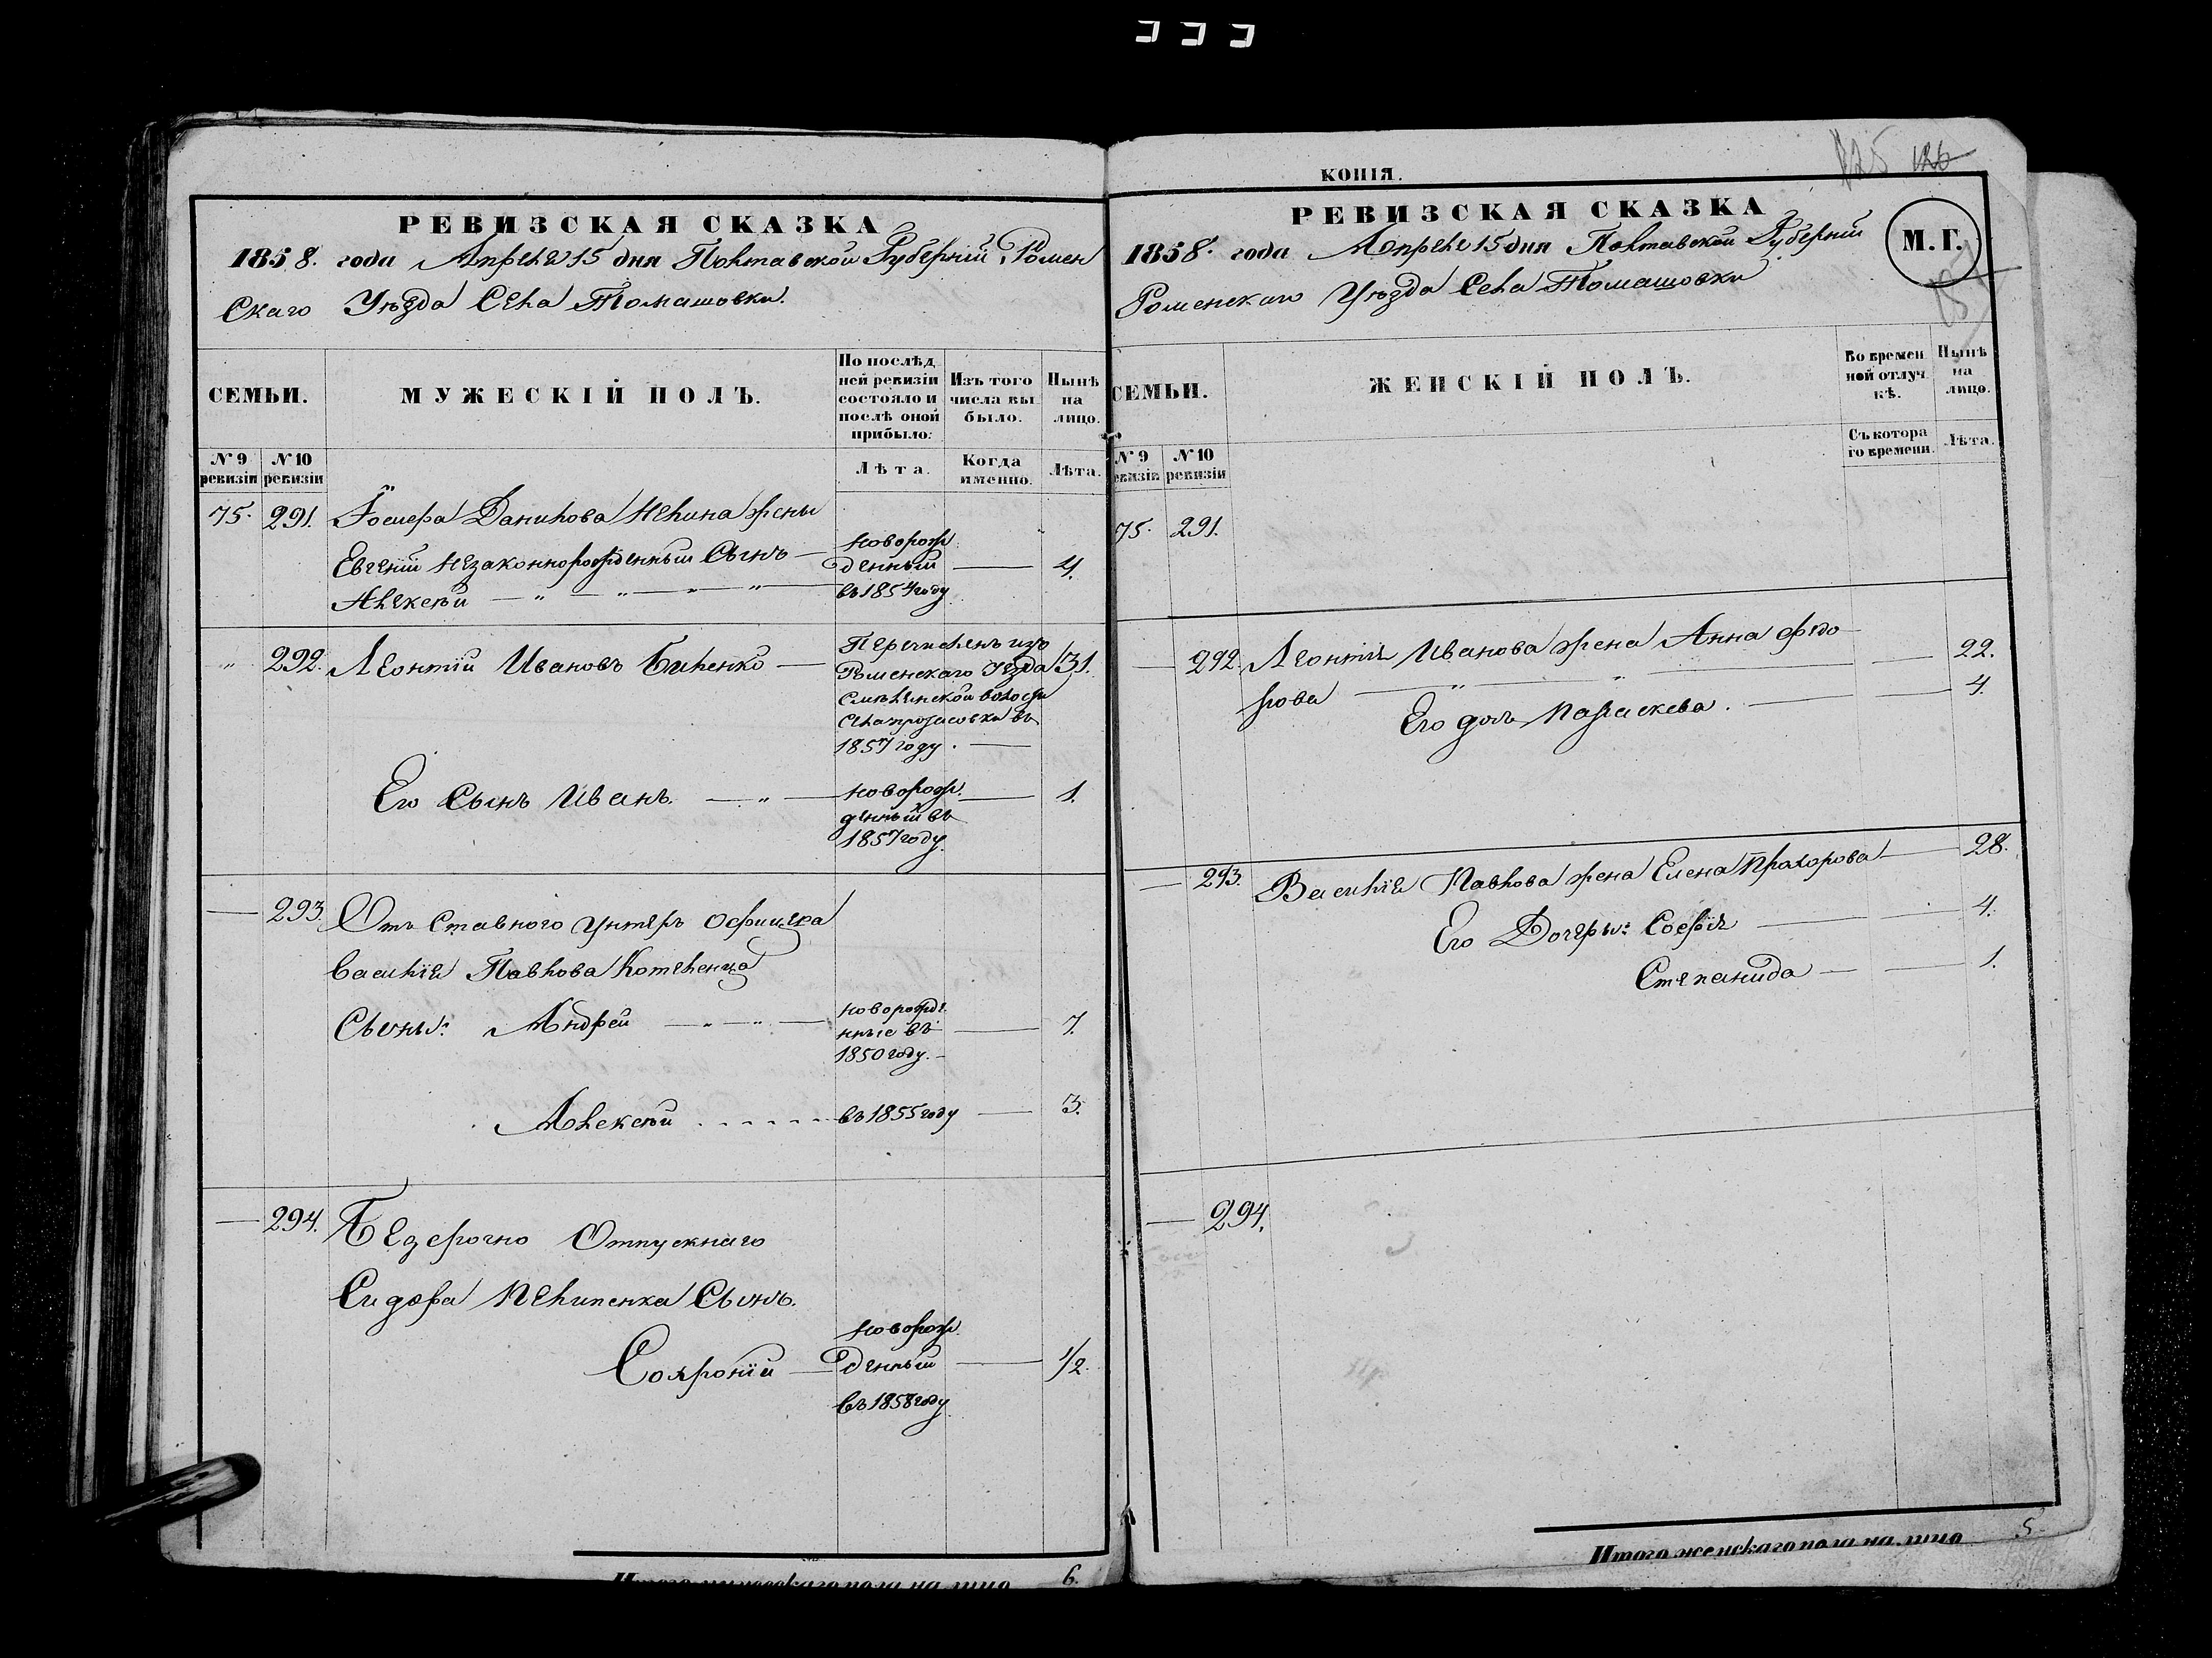 РЕВИЗСКАЯ СКАЗКА
1858. года Апреля 15 дня Полтавской Губерніи Ромен
скаго Уѣзда Села Томашовки.
СЕМЬИ.
МУЖЕСКІЙ ПОЛЪ.
По послѣд
ней ревизіи
состояло и
послѣ оной
прибыло.
Изъ того
числа вы
было.
Нынѣ
на
лицо.
№ 9
ревизіи
№ 10
ревизіи
Лѣта.
Когда
именно.
Лѣта.
75. 291. Данилова жены
Евгеніи Незаконнорожденный Сынъ
Алексѣй
Новорож
денный
въ 1854 году
4.
292. Леонтій Ивановъ Биленко
Перечисленъ изъ
Роменскаго Уѣзда
волости
Села въ
1857 году.
31.
Его Сынъ Иванъ.
новорож
денный въ
1857 году.
1.
293. Отъ Ставного Унтеръ Офицера
Василія Павлова Котеленца
Сыны: Андрей
новорожде
нные въ
1850 году.
7.
Алексѣй
въ 1855 году
3.
294. Безсрочно Отпускнаго
Сидора Пелипенка Сынъ.
Софроній
Новорож
денный
въ 1858 году
1/2.
Итого мужескаго пола на лицо 6.
КОПІЯ.
125 126
РЕВИЗСКАЯ СКАЗКА
1858. года Апреля 15 дня Полтавской Губерніи
Роменскаго Уѣзда Села Томашовки
М.Г.
СЕМЬИ.
ЖЕНСКІЙ ПОЛЪ.
Во времен
ной отлуч
кѣ.
Нынѣ
на
лицо.
№ 9
ревизіи
№ 10
ревизіи
Съ котора
го времени.
Лѣта.
75. 291.
292. Леонтія Иванова жена Анна Федо
рова
22.
Его дочь Параскева.
4.
293. Василія Павлова жена Елена Прохорова
28.
Его Дочери: Софія
4.
Степанида
1.
294.
Итого женскаго пола на лицо 5.